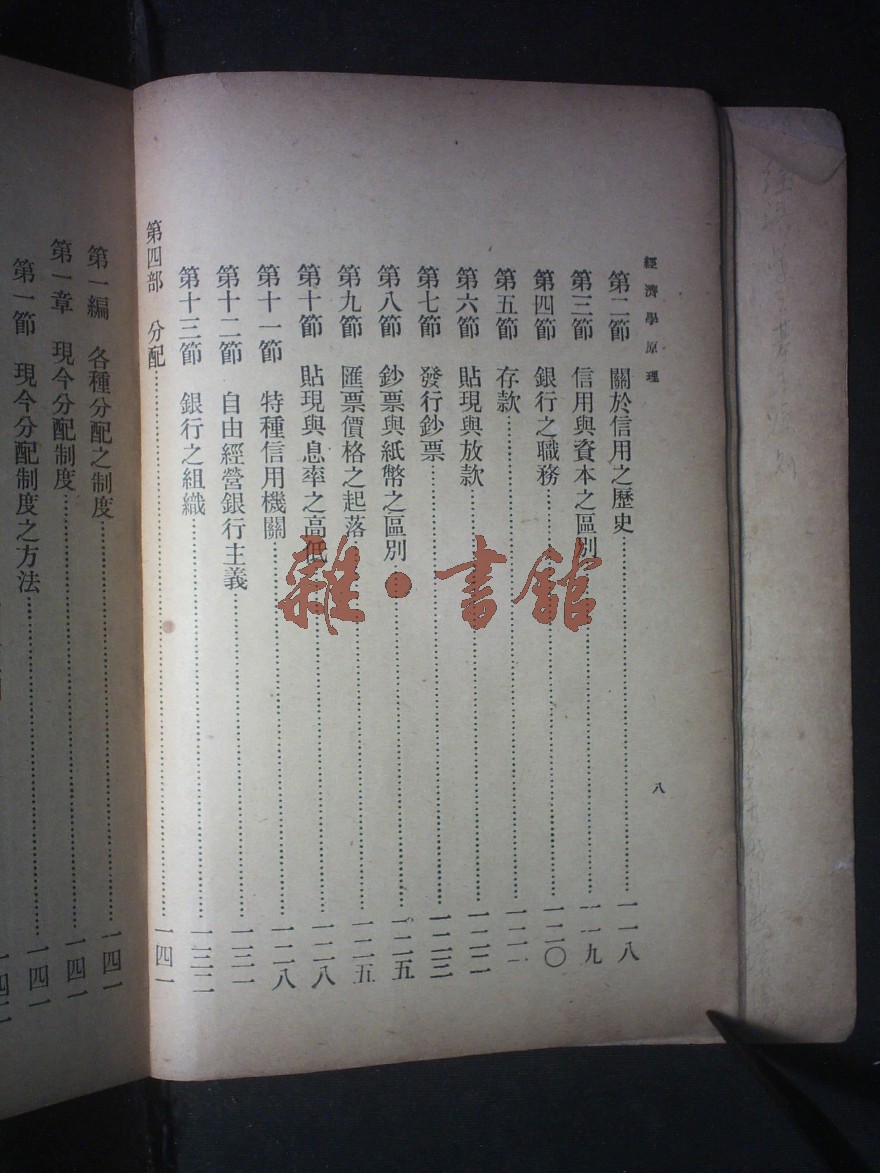 經濟學原理
八
第二節 關於信用之歷史……一一八
第三節 信用與資本之區別……一一九
第四節 銀行之職務……一二〇
第五節 存款……一二一
第六節 貼現與放款……一二二
第七節 發行鈔票……一二三
第八節 鈔票與紙幣之區別……一二五
第九節 匯票價格之起落……一二五
第十節 貼現與息率之高低……一二八
第十一節 特種信用機關……一二八
第十二節 自由經營銀行主義……一三一
第十三節 銀行之組織……一三二
第四部 分配……一四一
第一編 各種分配之制度……一四一
第一章 現今分配制度……一四一
第一節 現今分配制度之方法……一四一
一四二
雜•書館